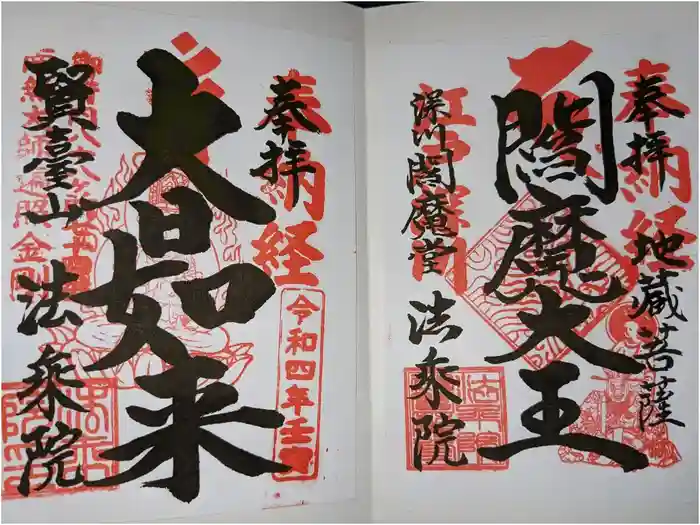 奉拝
地蔵菩薩
奉納経
閻魔大王
深川閻魔堂
法乗院
奉拝
奉納経
令和四年壬寅
大日如来
賢臺山
法乗院